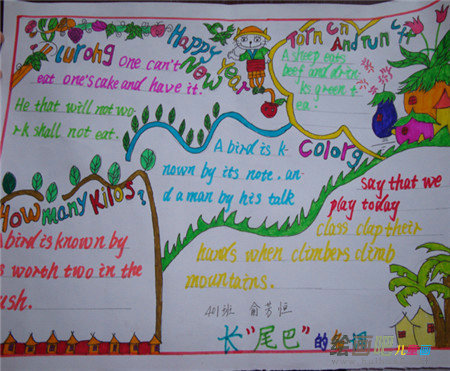 wrong
one can't
eat one's cake and have it.
He that will not wo-
rk shall not eat.
Happy
New Year
Torn on
And run off
A sheep eats
beef and drin-
ks green t
ea.
A bird is k-
nown by its note, an-
d a man by his talk
Colorg
say that we
play today
class clap their
hands when climbers climb
mountains.
How many Kilos?
A bird is known by
s worth two in the
ush.
401班 俞芳恒
长"尾巴"的
绘画吧